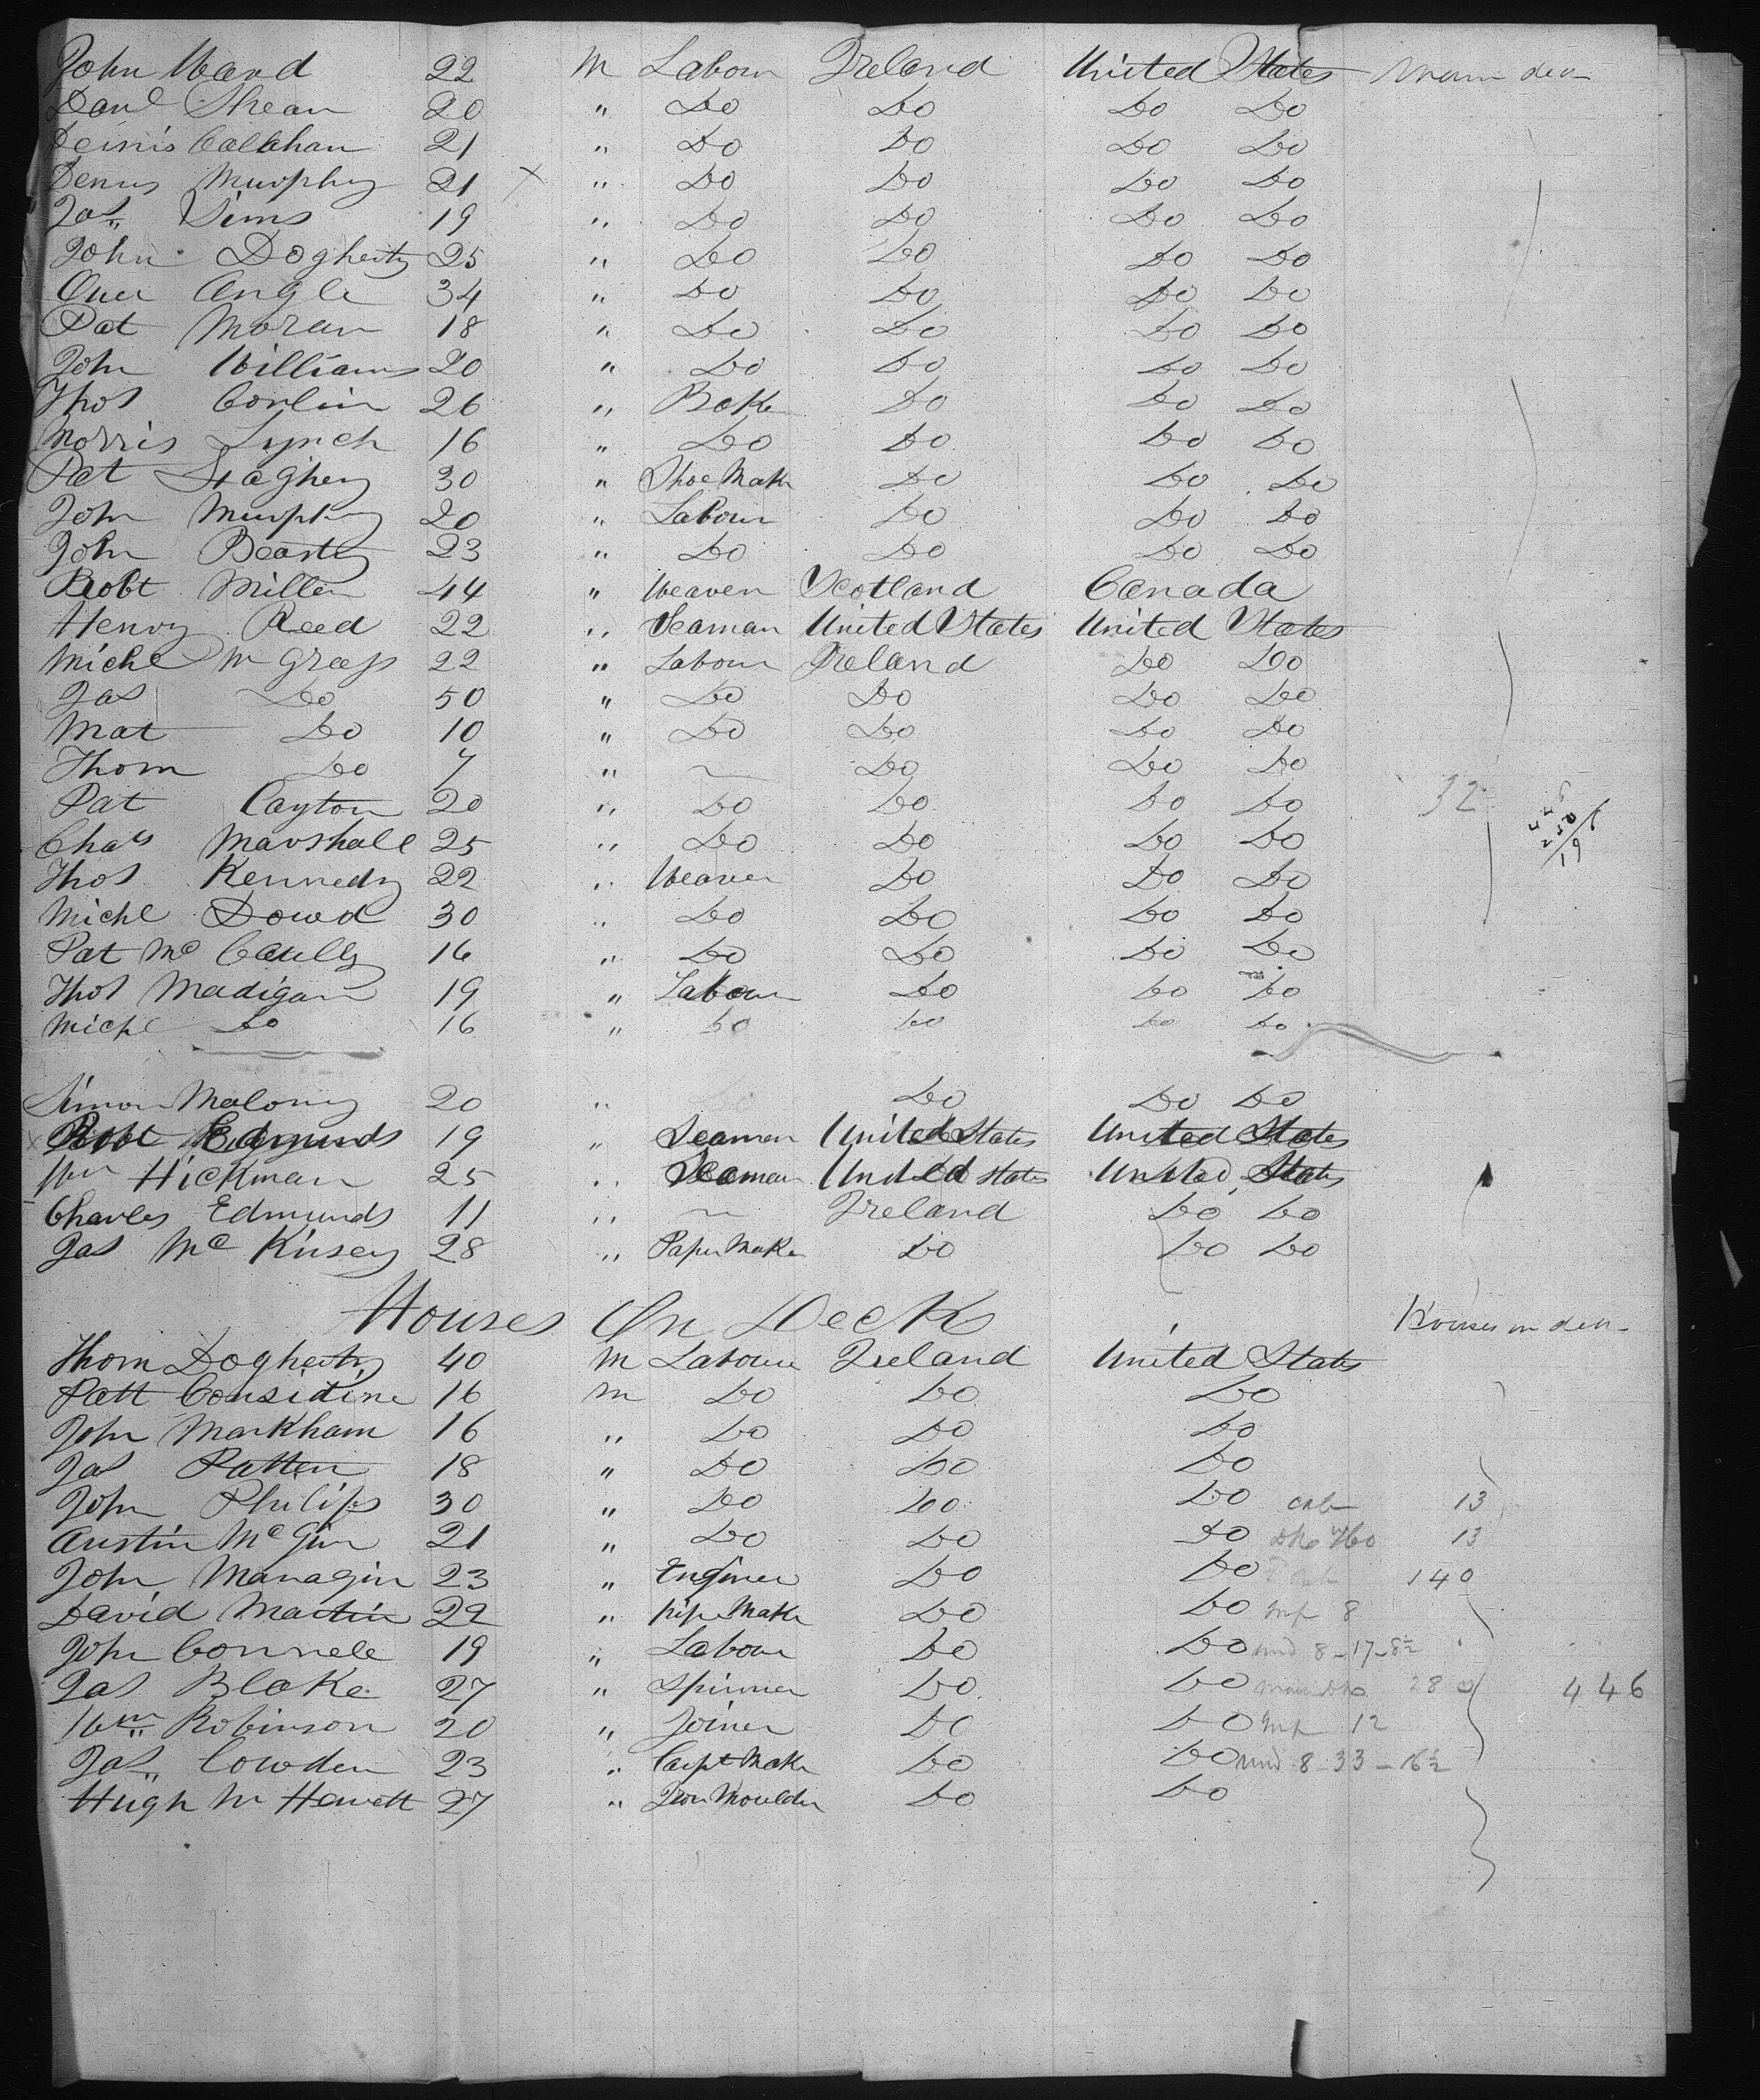 John Ward 22 M Labour Ireland United States Main deck
Danl Shean 20 " Do Do Do Do
Dennis Callahan 21 " Do Do Do Do
Denis Murphy 21 X " Do Do Do Do
Jas Sims 19 " Do Do Do Do
John Dogherty 25 " Do Do Do Do
Owen Angle 34 " Do Do Do Do
Pat Moran 18 " Do Do Do Do
John Williams 20 " Do Do Do Do
Thos Conlin 26 " Baker Do Do Do
Morris Lynch 16 " Do Do Do Do
Pat 30 " Shoe Maker Do Do Do
John Murphy 20 " Labour Do Do Do
John Beasty 23 " Do Do Do Do
Robt Miller 44 " Weaver Scotland Canada
Henry Reed 22 " Seaman United States United States
Michl 22 " Labour Ireland Do Do
Jas Do 50 " Do Do Do Do
Mat Do 10 " Do Do Do Do
Thom Do 7 " ~ Do Do Do
Pat Cayton 20 " Do Do Do Do 32
Chas Marshall 25 " Do Do Do Do
Thos Kennedy 22 " Weaver Do Do Do
Michl Dowd 30 " Do Do Do Do
Pat Mc Caully 16 " Do Do Do Do
Thos Madigan 19 " Labour Do Do Do
Michl Do 16 " Do Do Do Do
Simon Malony 20 " Do Do Do Do
X Robt Edmunds 19 " Seaman United States United States
Wm Hickman 25 " Seaman United States United States
Charles Edmunds 11 " ~ Ireland Do Do
Jas Mc Kinsey 28 " Paper Maker Do Do Do
Houses On Deck Houses on deck
Thom Dogherty 40 M Labour Ireland United States
Patt Considine 16 m Do Do Do
John Markham 16 " Do Do Do
Jas Patten 18 " Do Do Do
John Philips 30 " Do Do Do 13
Austin McGinn 21 " Do Do Do 13
John Managin 23 " Enginer Do Do 140
David Martin 22 " pipe Maker Do Do 8
John Connele 19 " Labour Do Do und 8 - 17 - 8½
Jas Blake 27 " Spinner Do Do 280 446
Wm Robinson 20 " Joiner Do Do 12
Jas Cowden 23 " Carpt Maker Do Do und 8 33 - 16½
Hugh Mc Hewett 27 " Iron Moulder Do Do